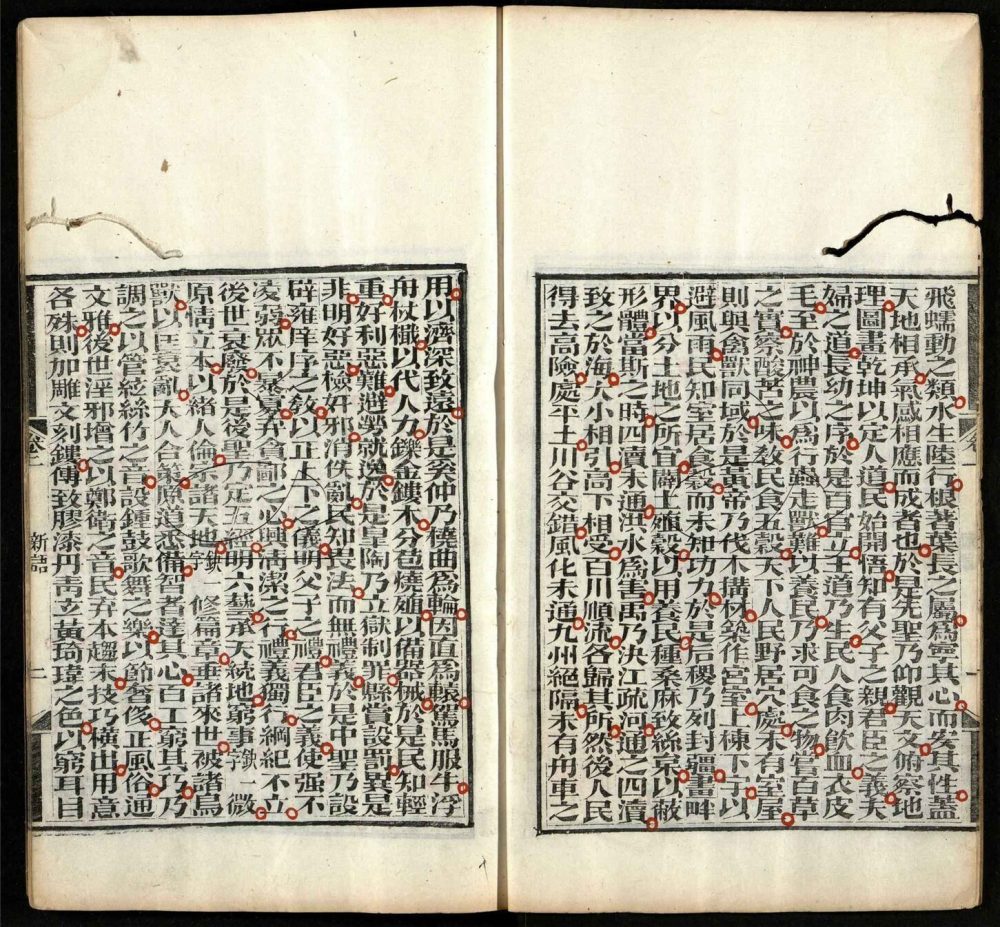 飛蠕動之類水生陸行根著葉長之屬爲寧其心而安其性蓋
天地相承氣感相應而成者也於是先聖乃仰觀天文俯察地
理圖畫乾坤以定人道民始開悟知有父子之親君臣之義夫
婦之道長幼之序於是百官立王道乃生民人食肉飲血衣皮
毛至於神農以爲行蟲走獸難以養民乃求可食之物嘗百草
之實察酸苦之味敎民食五穀天下人民野居穴處未有室屋
則與禽獸同域於是黃帝乃伐木搆材築作宮室上棟下宇以
避風雨民知室居食穀而未知功力於是后稷乃列封疆畫畔
界以分土地之所宜闢土殖穀以用養民種桑麻致絲枲以蔽
形體當斯之時四瀆未通洪水爲害禹乃決江疏河通之四瀆
致之於海大小相引高下相受百川順流各歸其所然後人民
得去高險處平土川谷交錯風化未通九州絕隔未有舟車之
用以濟深致遠於是奚仲乃橈曲爲輪因直爲轅駕馬服牛浮
舟杖檝以代人力鑠金鏤木分苞燒殖以備器械於是民知輕
重好利惡難避勞就逸於是皐陶乃立獄制罪縣賞設罰異是
非明好惡檢奸邪消佚亂民知畏法而無禮義於是中聖乃設
辟雍庠序之敎以正上下之儀明父子之禮君臣之義使强不
凌弱眾不暴寡弃貪鄙之心興淸潔之行禮義獨行綱紀不立
後世衰廢於是後聖乃定五經明六藝承天統地窮事缺一字微
原情立本以緒人倫宗諸天地缺一字修篇章垂諸來世被諸鳥
獸以匡衰亂天人合策原道悉備智者達其心百工窮其巧乃
調之以管絃絲竹之音設鍾鼓歌舞之樂以節奢侈正風俗通
文雅後世淫邪增之以鄭衛之音民弃本趨末技巧橫出用意
各殊則加雕文刻鏤傅致膠漆丹靑立黃琦瑋之色以窮耳目
卷一
新語
二